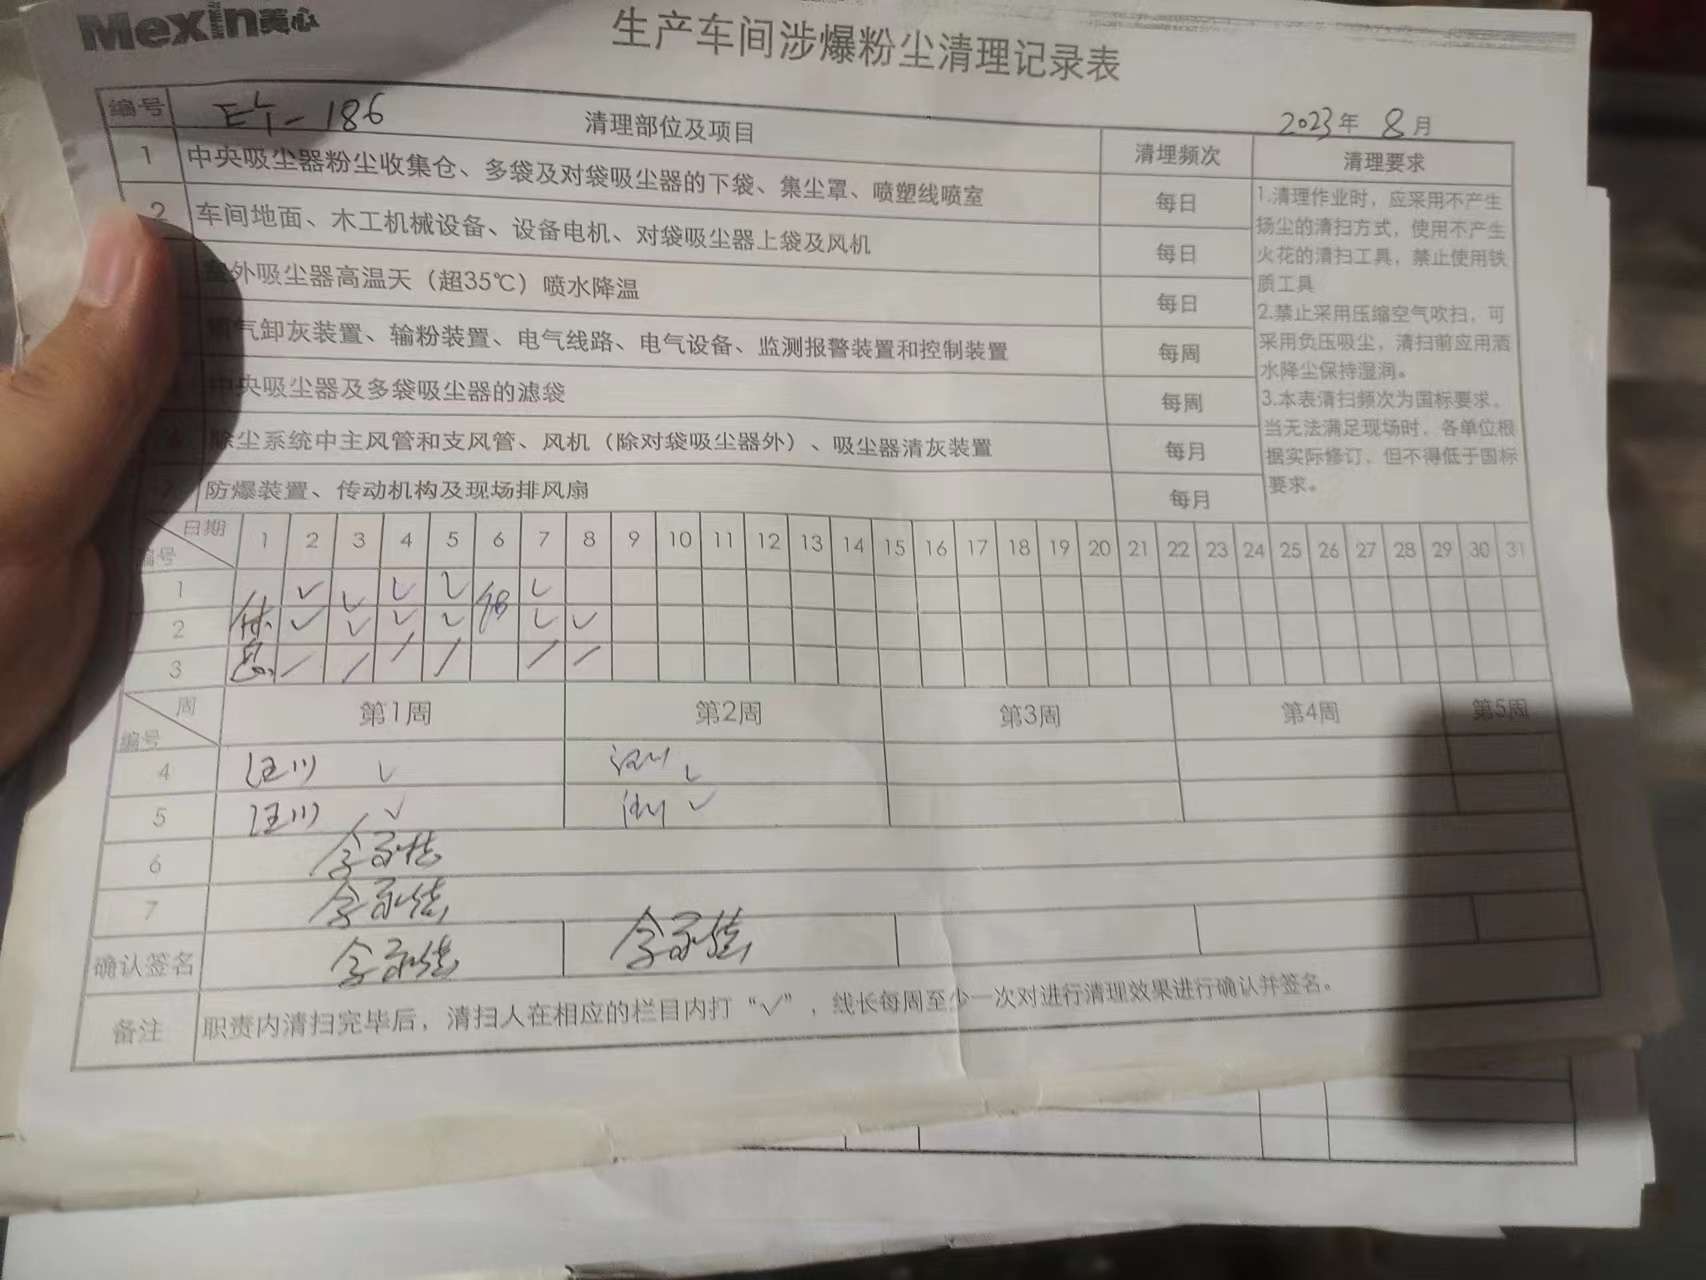 Mexin美心
生产车间涉爆粉尘清理记录表
2023年 8月
编号 清理部位及项目 清理频次 清理要求
1 中央吸尘器粉尘收集仓、多袋及对袋吸尘器的下袋、集尘罩、喷塑线喷室 每日
2 车间地面、木工机械设备、设备电机、对袋吸尘器上袋及风机 每日
外吸尘器高温天（超35℃）喷水降温 每日
气卸灰装置、输粉装置、电气线路、电气设备、监测报警装置和控制装置 每周
中央吸尘器及多袋吸尘器的滤袋 每周
除尘系统中主风管和支风管、风机（除对袋吸尘器外）、吸尘器清灰装置 每月
防爆装置、传动机构及现场排风扇 每月
1.清理作业时，应采用不产生
扬尘的清扫方式，使用不产生
火花的清扫工具，禁止使用铁
质工具
2.禁止采用压缩空气吹扫，可
采用负压吸尘，清扫前应用洒
水降尘保持湿润。
3.本表清扫频次为国标要求，
当无法满足现场时，各单位根
据实际修订，但不得低于国标
要求。
日期 1 2 3 4 5 6 7 8 9 10 11 12 13 14 15 16 17 18 19 20 21 22 23 24 25 26 27 28 29 30 31
编号
1 ✓ ✓ ✓ ✓ ✓
2 休 ✓ ✓ ✓ ✓ ✓ ✓
3 息 / / / / / /
周 第1周 第2周 第3周 第4周 第5周
编号
4 汪川 ✓ 汪川 ✓
5 汪川 ✓ 汪川 ✓
6
7
确认签名
备注 职责内清扫完毕后，清扫人在相应的栏目内打“✓”，线长每周至少一次对进行清理效果进行确认并签名。